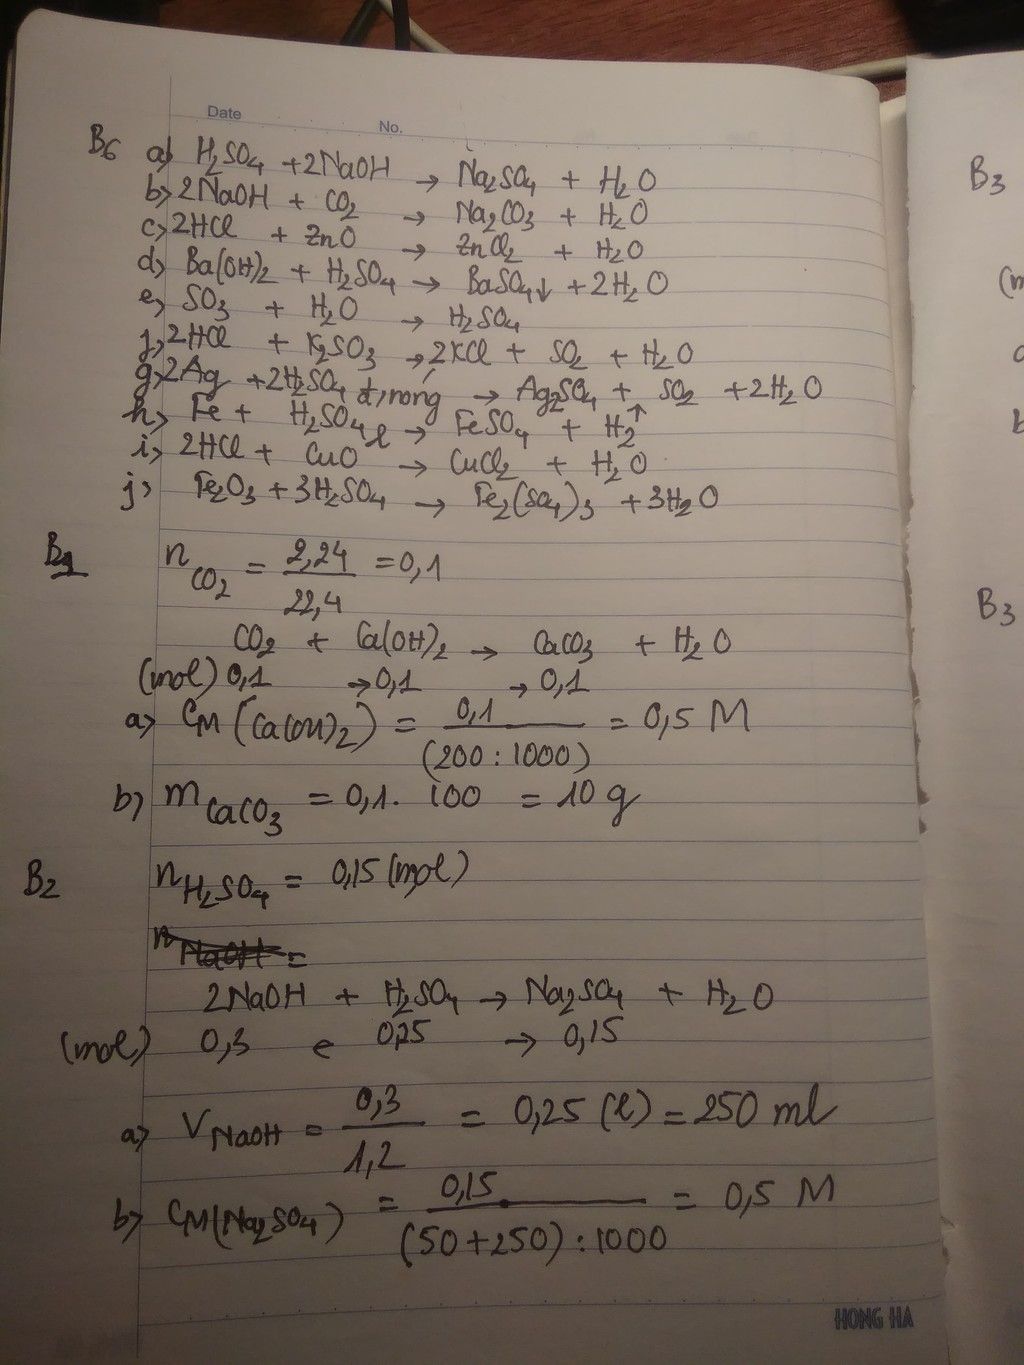 Date
No.
B6 a) H₂SO₄ + 2NaOH → Na₂SO₄ + H₂O
b) 2NaOH + CO₂ → Na₂CO₃ + H₂O
c) 2HCl + ZnO → ZnCl₂ + H₂O
d) Ba(OH)₂ + H₂SO₄ → BaSO₄↓ + 2H₂O
e) SO₃ + H₂O → H₂SO₄
f) 2HCl + K₂SO₃ → 2KCl + SO₂ + H₂O
g) 2Ag + 2H₂SO₄ đ, nóng → Ag₂SO₄ + SO₂ + 2H₂O
h) Fe + H₂SO₄ l → FeSO₄ + H₂↑
i) 2HCl + CuO → CuCl₂ + H₂O
j) Fe₂O₃ + 3H₂SO₄ → Fe₂(SO₄)₃ + 3H₂O
B1 n CO₂ = 2,24 / 22,4 = 0,1
CO₂ + Ca(OH)₂ → CaCO₃ + H₂O
(mol) 0,1 → 0,1 → 0,1
a) CM (Ca(OH)₂) = 0,1 / (200 : 1000) = 0,5 M
b) m CaCO₃ = 0,1 . 100 = 10 g
B2 n H₂SO₄ = 0,15 (mol)
n NaOH =
2NaOH + H₂SO₄ → Na₂SO₄ + H₂O
(mol) 0,3 ← 0,15 → 0,15
a) V NaOH = 0,3 / 1,2 = 0,25 (l) = 250 ml
b) CM(Na₂SO₄) = 0,15 / (50 + 250) : 1000 = 0,5 M
HONG HA
B3
(m
b
B3